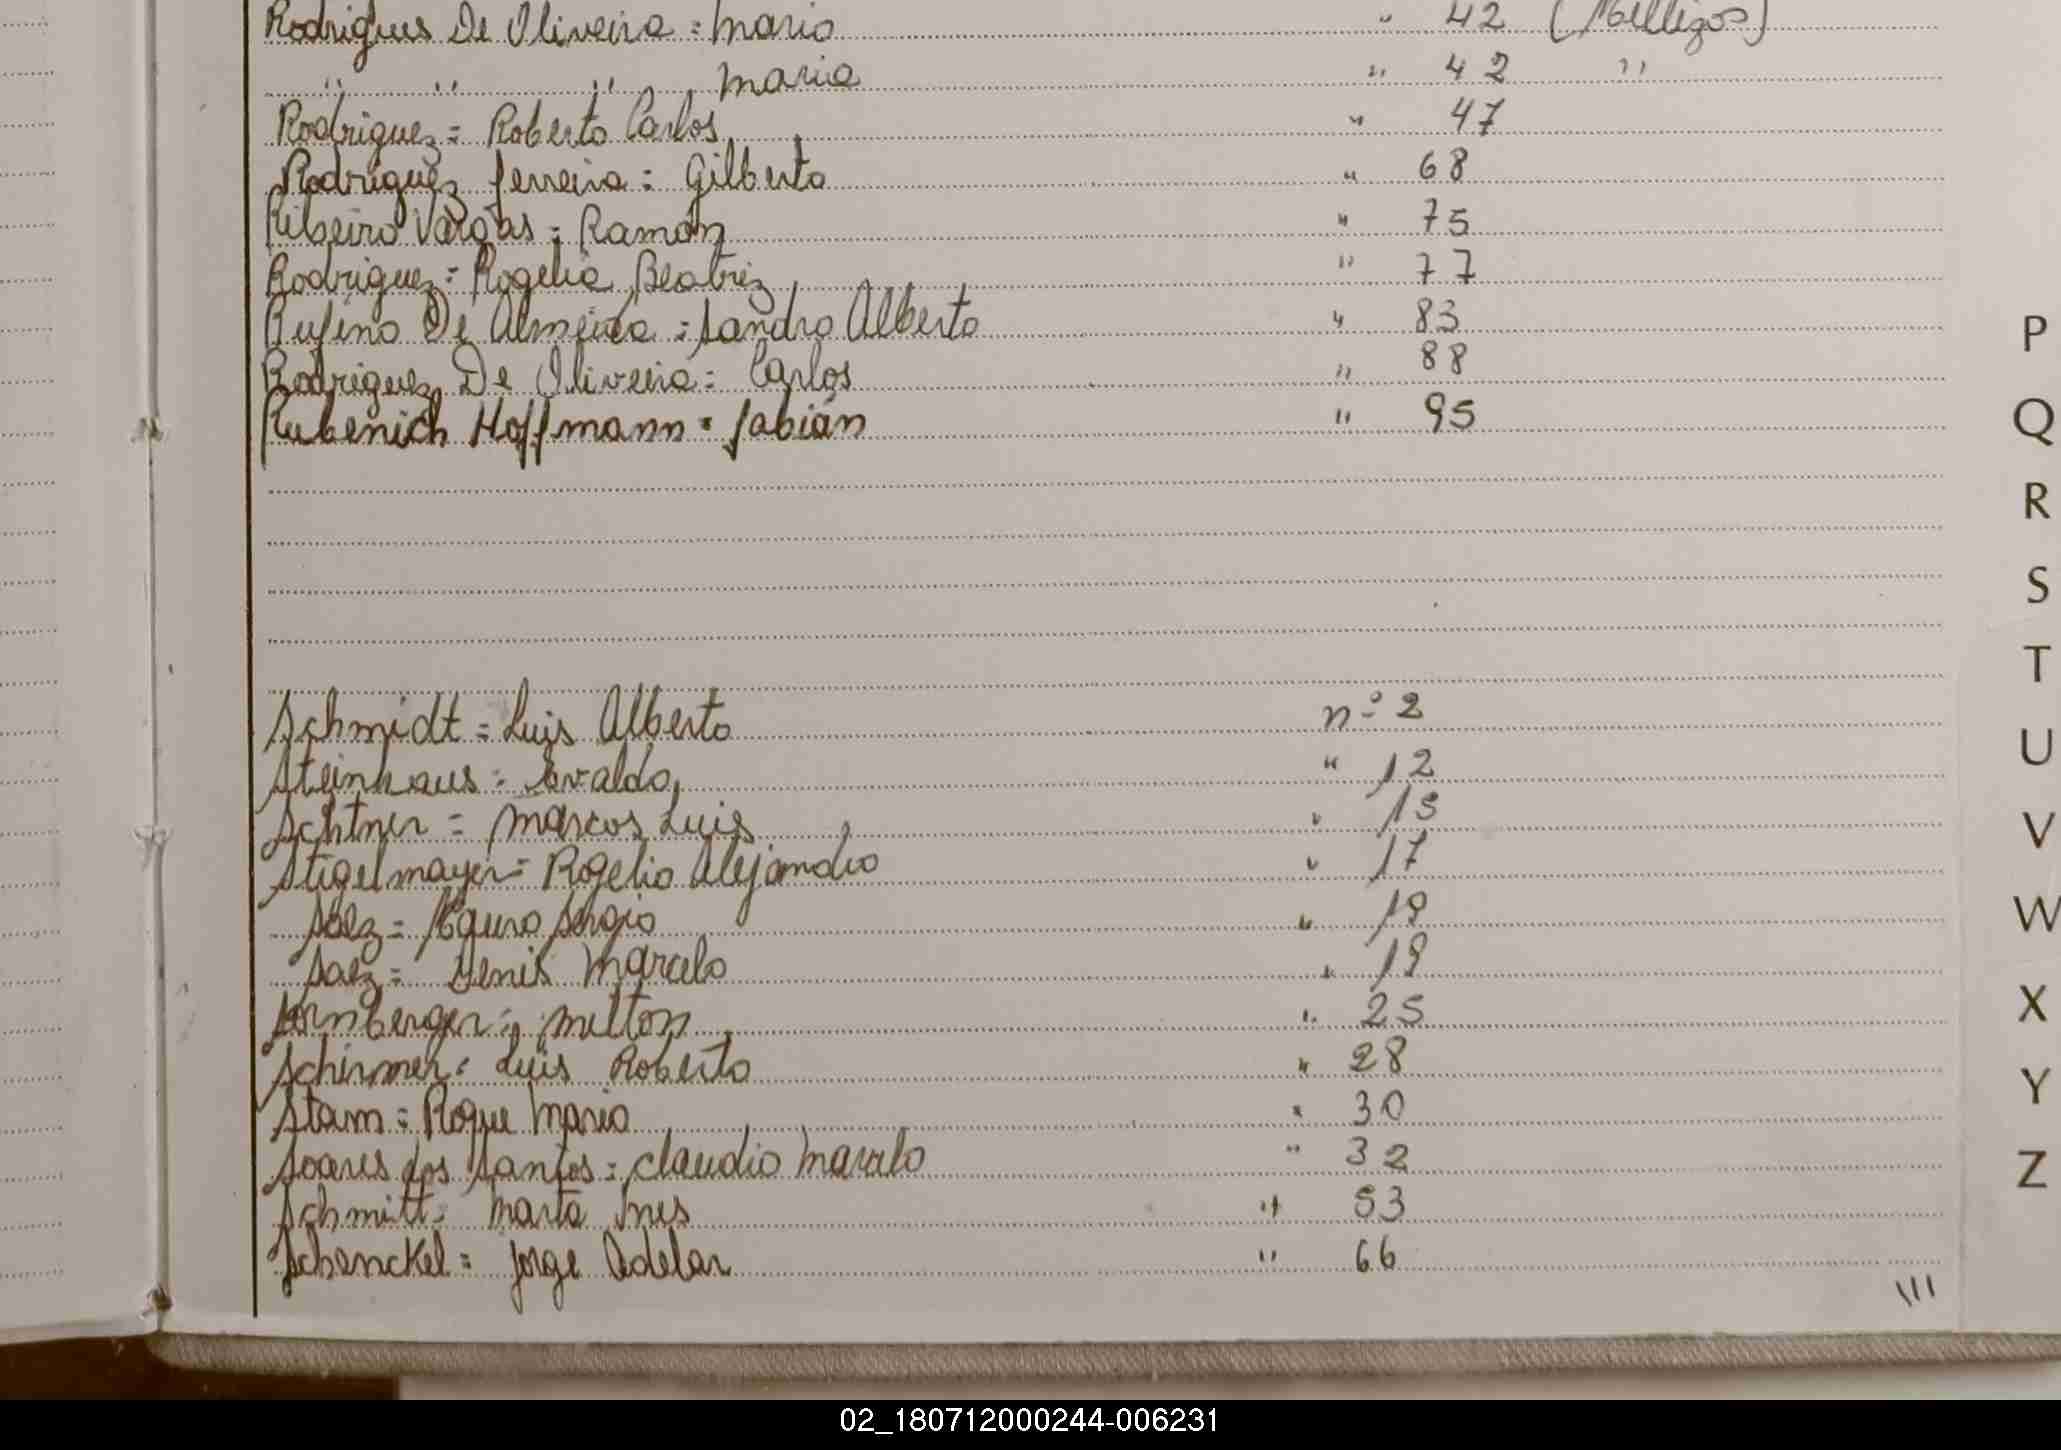 Rodrigues De Oliveira = Mario " 42 (Mellizos)
" " " Maria " 42 "
Rodriguez = Roberto Carlos " 47
Rodriguez Ferreira = Gilberto " 68
Ribeiro Vargas = Ramón " 75
Rodriguez = Rogelia Beatriz " 77
Rufino De Almeida = Sandro Alberto " 83
Rodriguez De Oliveira = Carlos " 88
Rubenich Hoffmann = Fabián " 95
Schmidt = Luis Alberto nº 2
Steinhaus = Evaldo " 12
Schtner = Marcos Luis " 15
Stigelmayer = Rogelio Alejandro " 17
Saez = Mauro Sergio " 19
Saez = Denis Marcelo " 19
Sornberger = Milton " 25
Schirmer = Luis Roberto " 28
Stam = Roque Mario " 30
Soares dos Santos = Claudio Marcelo " 32
Schmitt = Marta Ines " 53
Schenckel = Jorge Adelar " 66
///
P
Q
R
S
T
U
V
W
X
Y
Z
02_180712000244-006231